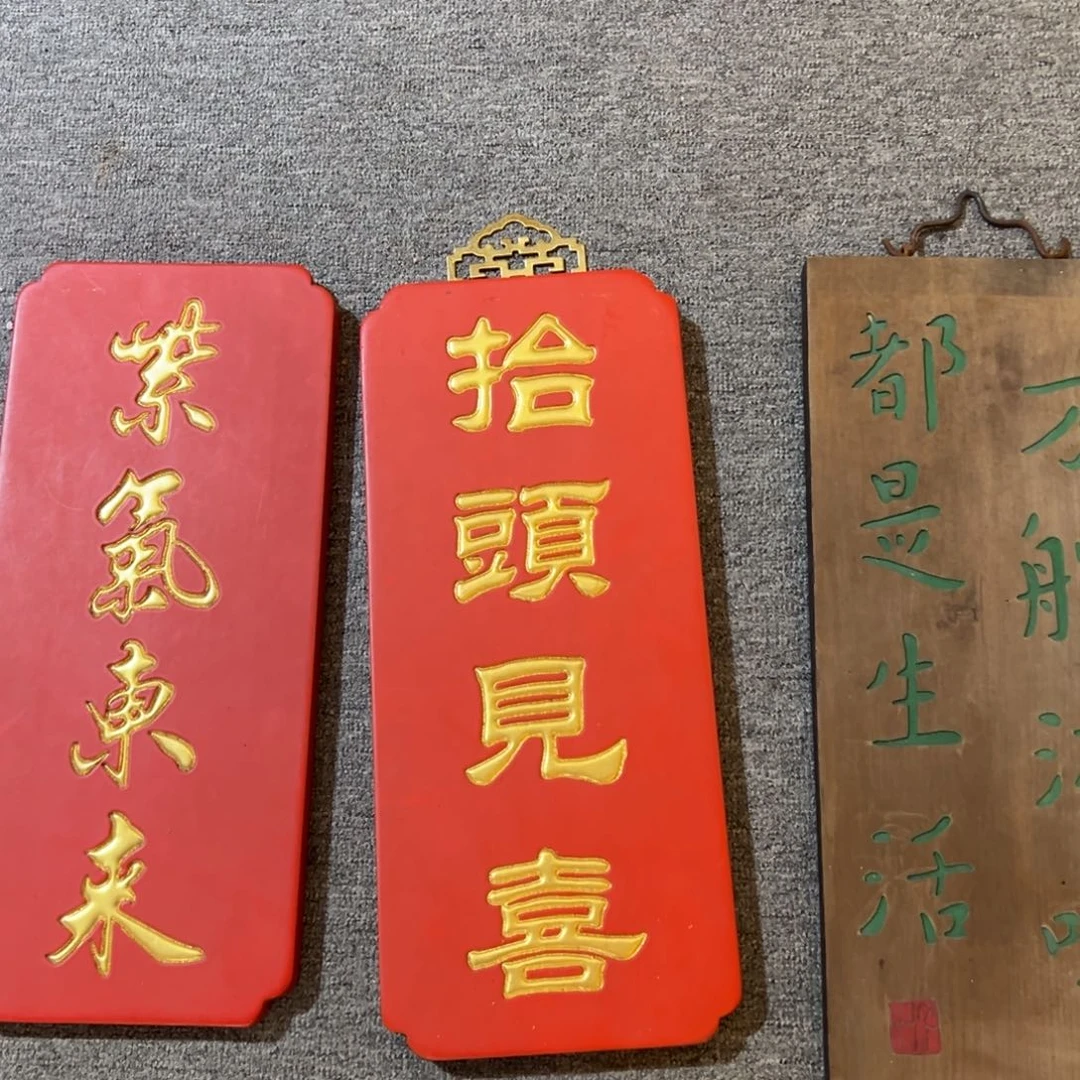 紫氣東來
拾頭見喜
都是生活